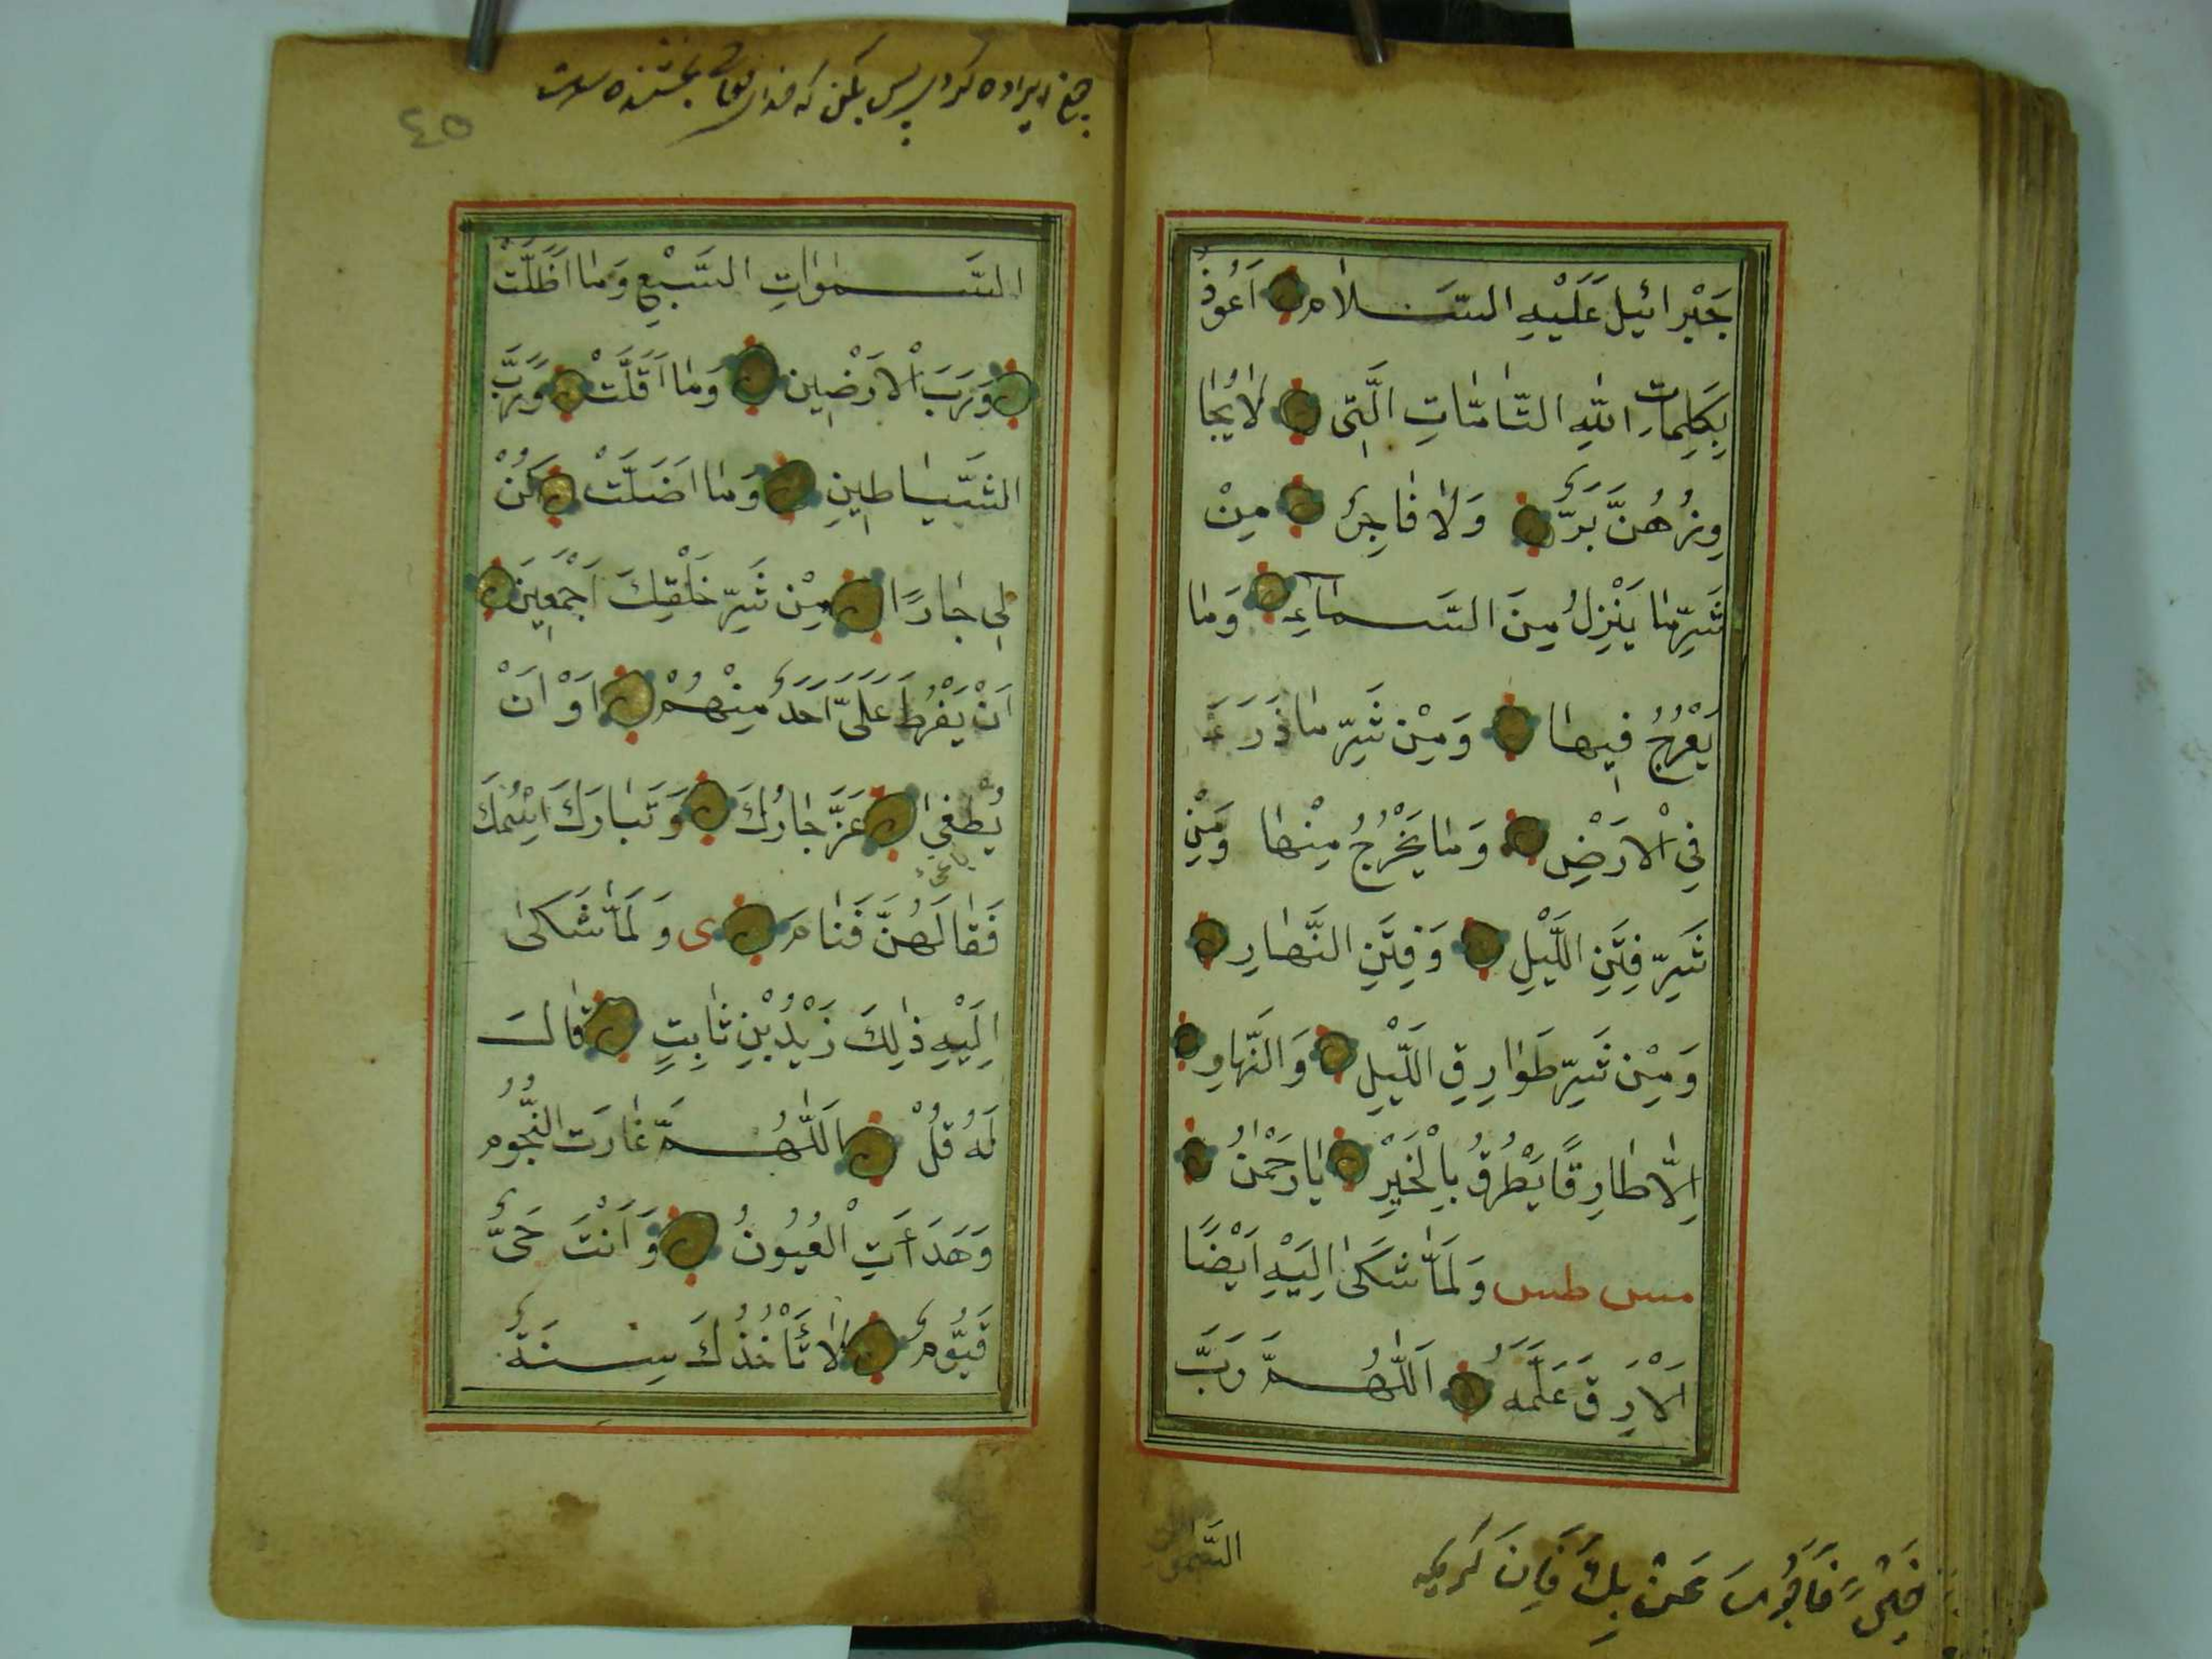 جَبْرائيلَ عَلَيْهِ السَّلامُ اَعُوذُ
بِكَلِماتِ اللهِ التَّامَّاتِ الَّتِى لاٰيُجٰا
وِزُهُنَّ بَرٌّ وَلاٰ فٰاجِرٌ مِنْ
شَرِّمٰا يَنْزِلُ مِنَ السَّمٰاءِ وَمٰا
يَعْرُجُ فِيهٰا وَمِنْ شَرِّ مٰا ذَرَءَ
فِي الْاَرْضِ وَمٰا يَخْرُجُ مِنْهٰا وَمِنْ
شَرِّ فِتَنِ اللَّيْلِ وَفِتَنِ النَّهٰارِ
وَمِنْ شَرِّ طَوٰارِقِ اللَّيْلِ وَالنَّهٰارِ
اِلاّٰ طٰارِقًا يَطْرُقُ بِالْخَيْرِ يٰارَحْمٰنُ
مس طس وَلَمّٰا شَكىٰ اِلَيْهِ اَيْضًا
اَلْاَرَقَ عَلَّمَهُ اَللّٰهُمَّ رَبَّ
السَّمٰوات
السَّمٰوٰاتِ السَّبْعِ وَمٰا اَظَلَّتْ
وَرَبَّ الْاَرَضِينَ وَمٰا اَقَلَّتْ وَرَبَّ
الشَّيٰاطِينِ وَمٰا اَضَلَّتْ كُنْ
لِي جٰارًا مِنْ شَرِّ خَلْقِكَ اَجْمَعِينَ
اَنْ يَفْرُطَ عَلَىَّ اَحَدٌ مِنْهُمْ اَوْ اَنْ
يَطْغىٰ عَزَّ جٰارُكَ وَتَبٰارَكَ اسْمُكَ
فَقٰالَهُنَّ فَنٰامَ ى وَلَمّٰا شَكىٰ
اِلَيْهِ ذٰلِكَ زَيْدُ بْنِ ثٰابِتٍ قٰالَ
لَهُ قُلْ اَللّٰهُمَّ غٰارَتِ النُّجُومُ
وَهَدَأَتِ الْعُيُونُ وَاَنْتَ حَىٌّ
قَيُّومٌ لاٰ تَأْخُذُكَ سِنَةٌ
٤٥